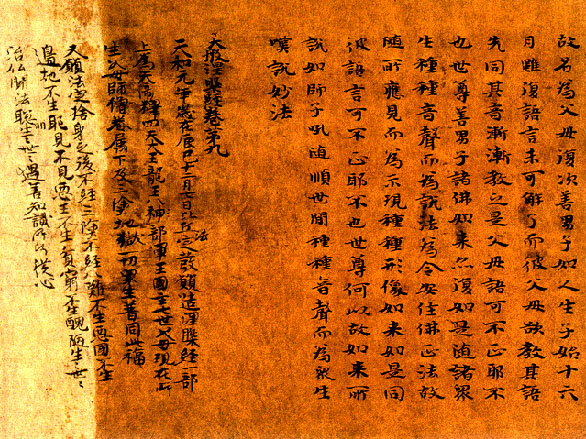 故名為父母復次善男子如人生子始十六
月雖復語言未可解了而彼父母欲教其語
先同其音漸漸教之是父母語可不正耶不
也世尊善男子諸佛如來亦復如是隨諸眾
生種種音聲而為說法為令安住佛正法故
隨所應見而為示現種種形像如來如是同
彼語言可不正耶不也世尊何以故如來所
說如師子吼隨順世間種種音聲而為眾生
嘆說妙法
大般涅槃經卷第九
天和元年歲在辰巳十二月七日比丘法定發願造涅槃經一部
上為天龍四天王龍王八部軍王國主七世父母現在父
母師僧眷屬下及三塗地獄一切眾生普同此福
又願法定捨身之後不經三塗不經八難不生惡國不生
邊地不生耶見不見惡王不生貧窮不生醜陋生生世世
治化聞法聰明生生遇善知識所行從心